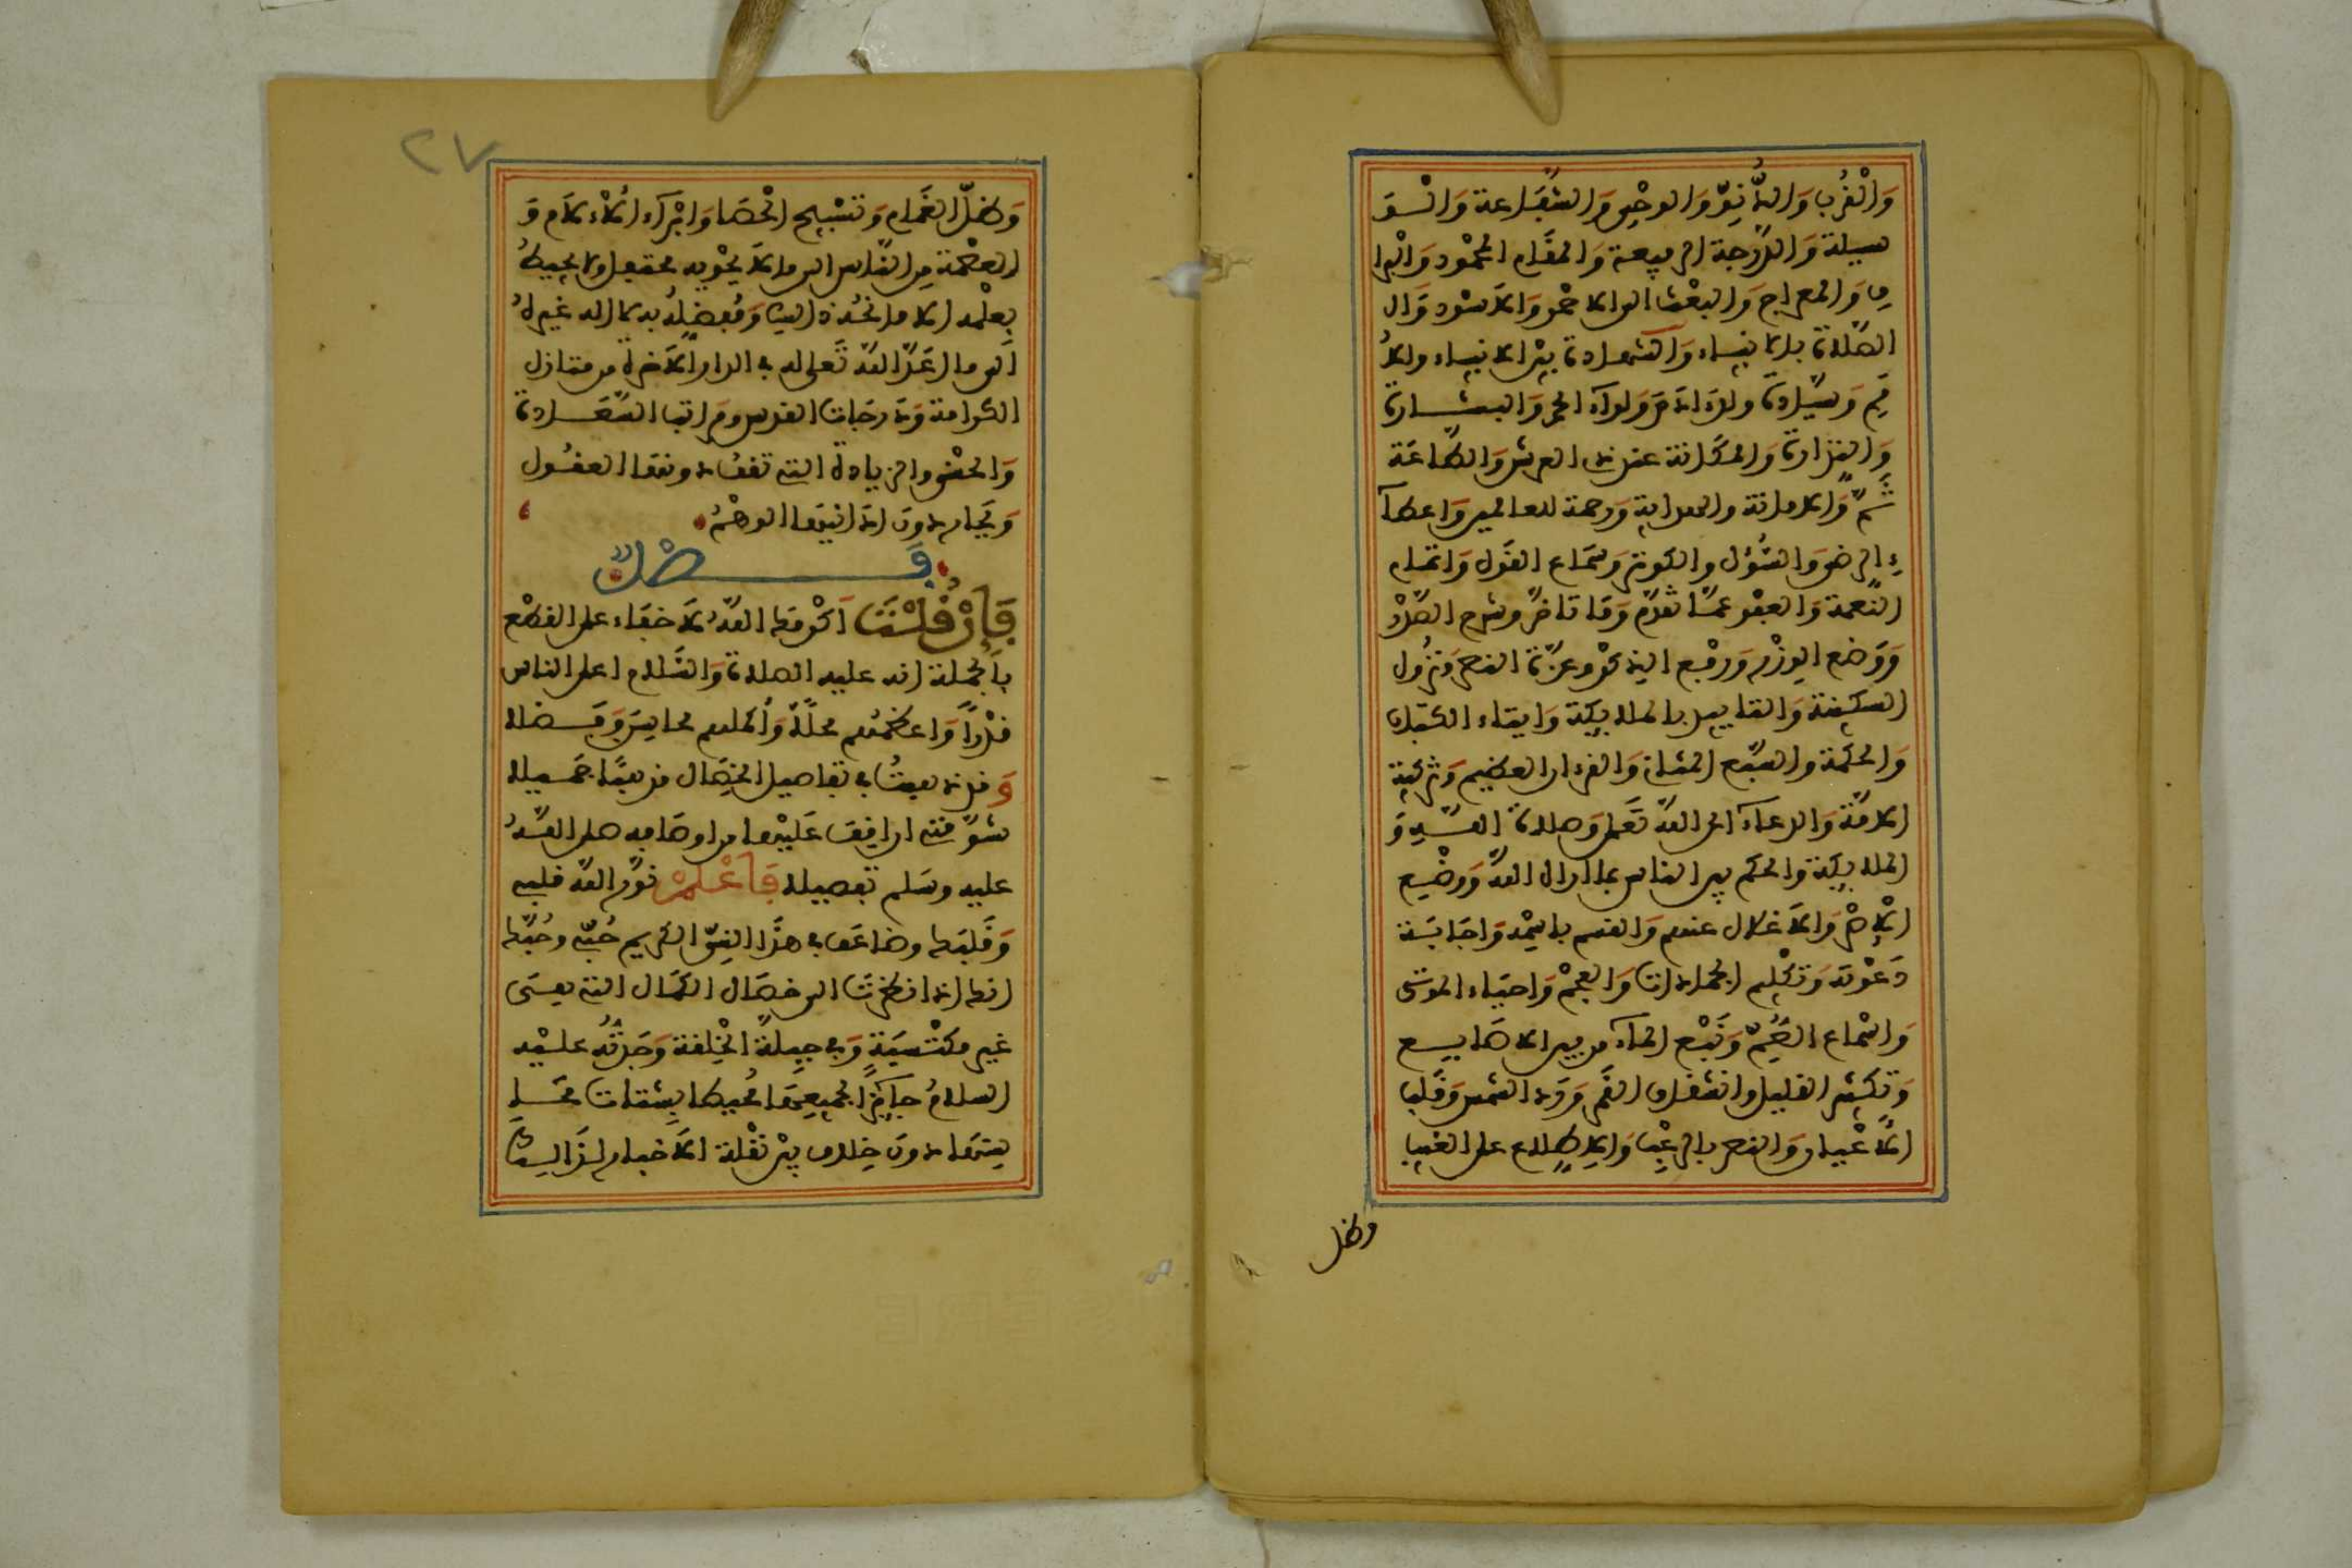 وَالْقُرْبِ وَالدُّنُوِّ وَالوحْيِ وَالشَّفَاعة وَالْوَ
سيلة وَالدَّرجة الرفيعة وَالمقَام المحمُود وَالْبُرا
ق وَالمعراج وَالبعْث الى الاحْمر وَالاَسْود وَال
الصّلاة بالانبياء وَالشهادة بيْن الانبياء والامُ
مِ وَسيَادة ولد ادَم وَلوآء الحمد وَالبشارة
وَالنذارة والمكَانة عند ذى العرش وَالطَّاعَة
ثَمَّ وَالامانة والهداية وَرحمة للعالمين وَاعطآ
ء الرضى وَالسُّؤل والكوثر وَسمَاع القَول وَاتمام
النِّعمة وَالعفْو عمّا تقدّم وَمَا تاخر وشرح الصَّدْر
وَوَضع الوِزْر وَرفْع الذكر وعزّة النصر وَنزُول
السكينة وَالتاييد بالملايكة وَايتاء الكتاب
وَالحكمة والسَّبع المثانى وَالقرءان العظيم وَتزكية
الامّة وَالدعآء الى اللّه تَعلى وَصلاة اللّه وَ
الملايكة والحكم بين الناس بما اراه اللّه وَوضْع
الاِصْر وَالاَغلال عنهم وَالقسم باسْمه وَاجَابَة
دَعْوته وَتكْليم الجمادات وَالعجْم وَاحيَاء الموتى
وَاسْماع الصُّمّ وَنَبْع المآء من بين الاصَابيع
وَتكثير القليل وانشقاق القَمر وَرَد الشمس وَقَلب
الاَعْيان وَالنصر بالرعْب وَالاِطلاع على الغيب
وظل
٢٧
وَظلّ الغَمام وَتسْبيح الْحصَا وَابْرآء الاَءلام وَ
العصْمة مِن النَّاس الى ما لاَ يحْويه محتفل ولا يحيطُ
بعلْمه الا مانحُه ذالك وَمُفضِلُه به لا اله غيرهُ
الى ما اعَدّ اللّه تَعلى له فى الدار الاَخرة من منازل
الكرامة وَدرجَات القدس ومراتب السَّعَادة
وَالحسْنى والزيادة التى تقف دونها العقُول
وَيَحَار دونَ ادَانيهَا الوهْمُ
فَصْلٌ
فَإنْ قُلْتَ اكرَمَك اللّهُ لاَ خفَاء على القطْع
بالجُملة انه عليه الصلاة وَالسَّلام اعلى الناس
قدْراً وَاعظمُهم محلّاً وَأكملهم محاسِنَ وَفَضلا
وَقد ذهبتُ فى تفاصيل الخِصَال مذهبًا جَميلا
شوَّقنى ان اقِف عَليْها من اوصَافه صلى اللّهُ
عليه وسَلم تفصيلا فَاعْلمْ نوَّر اللّه قلبى
وَقَلبَك وضاعَف فى هذَا النبِىّ الكريم حُبّى وحُبَّك
انك اذا نظرْتَ الى خصَال الكمَال التى هىَ
غير مكْتسَبَةٍ وَفى جبلّة الخِلقة وَجدْتُه عليْه
السلامُ حايزًا لجميعِهَا محُيطا بشتات محَا
سنهَا دونَ خِلاف بيْن نقْلة الاَخبار لذَالك